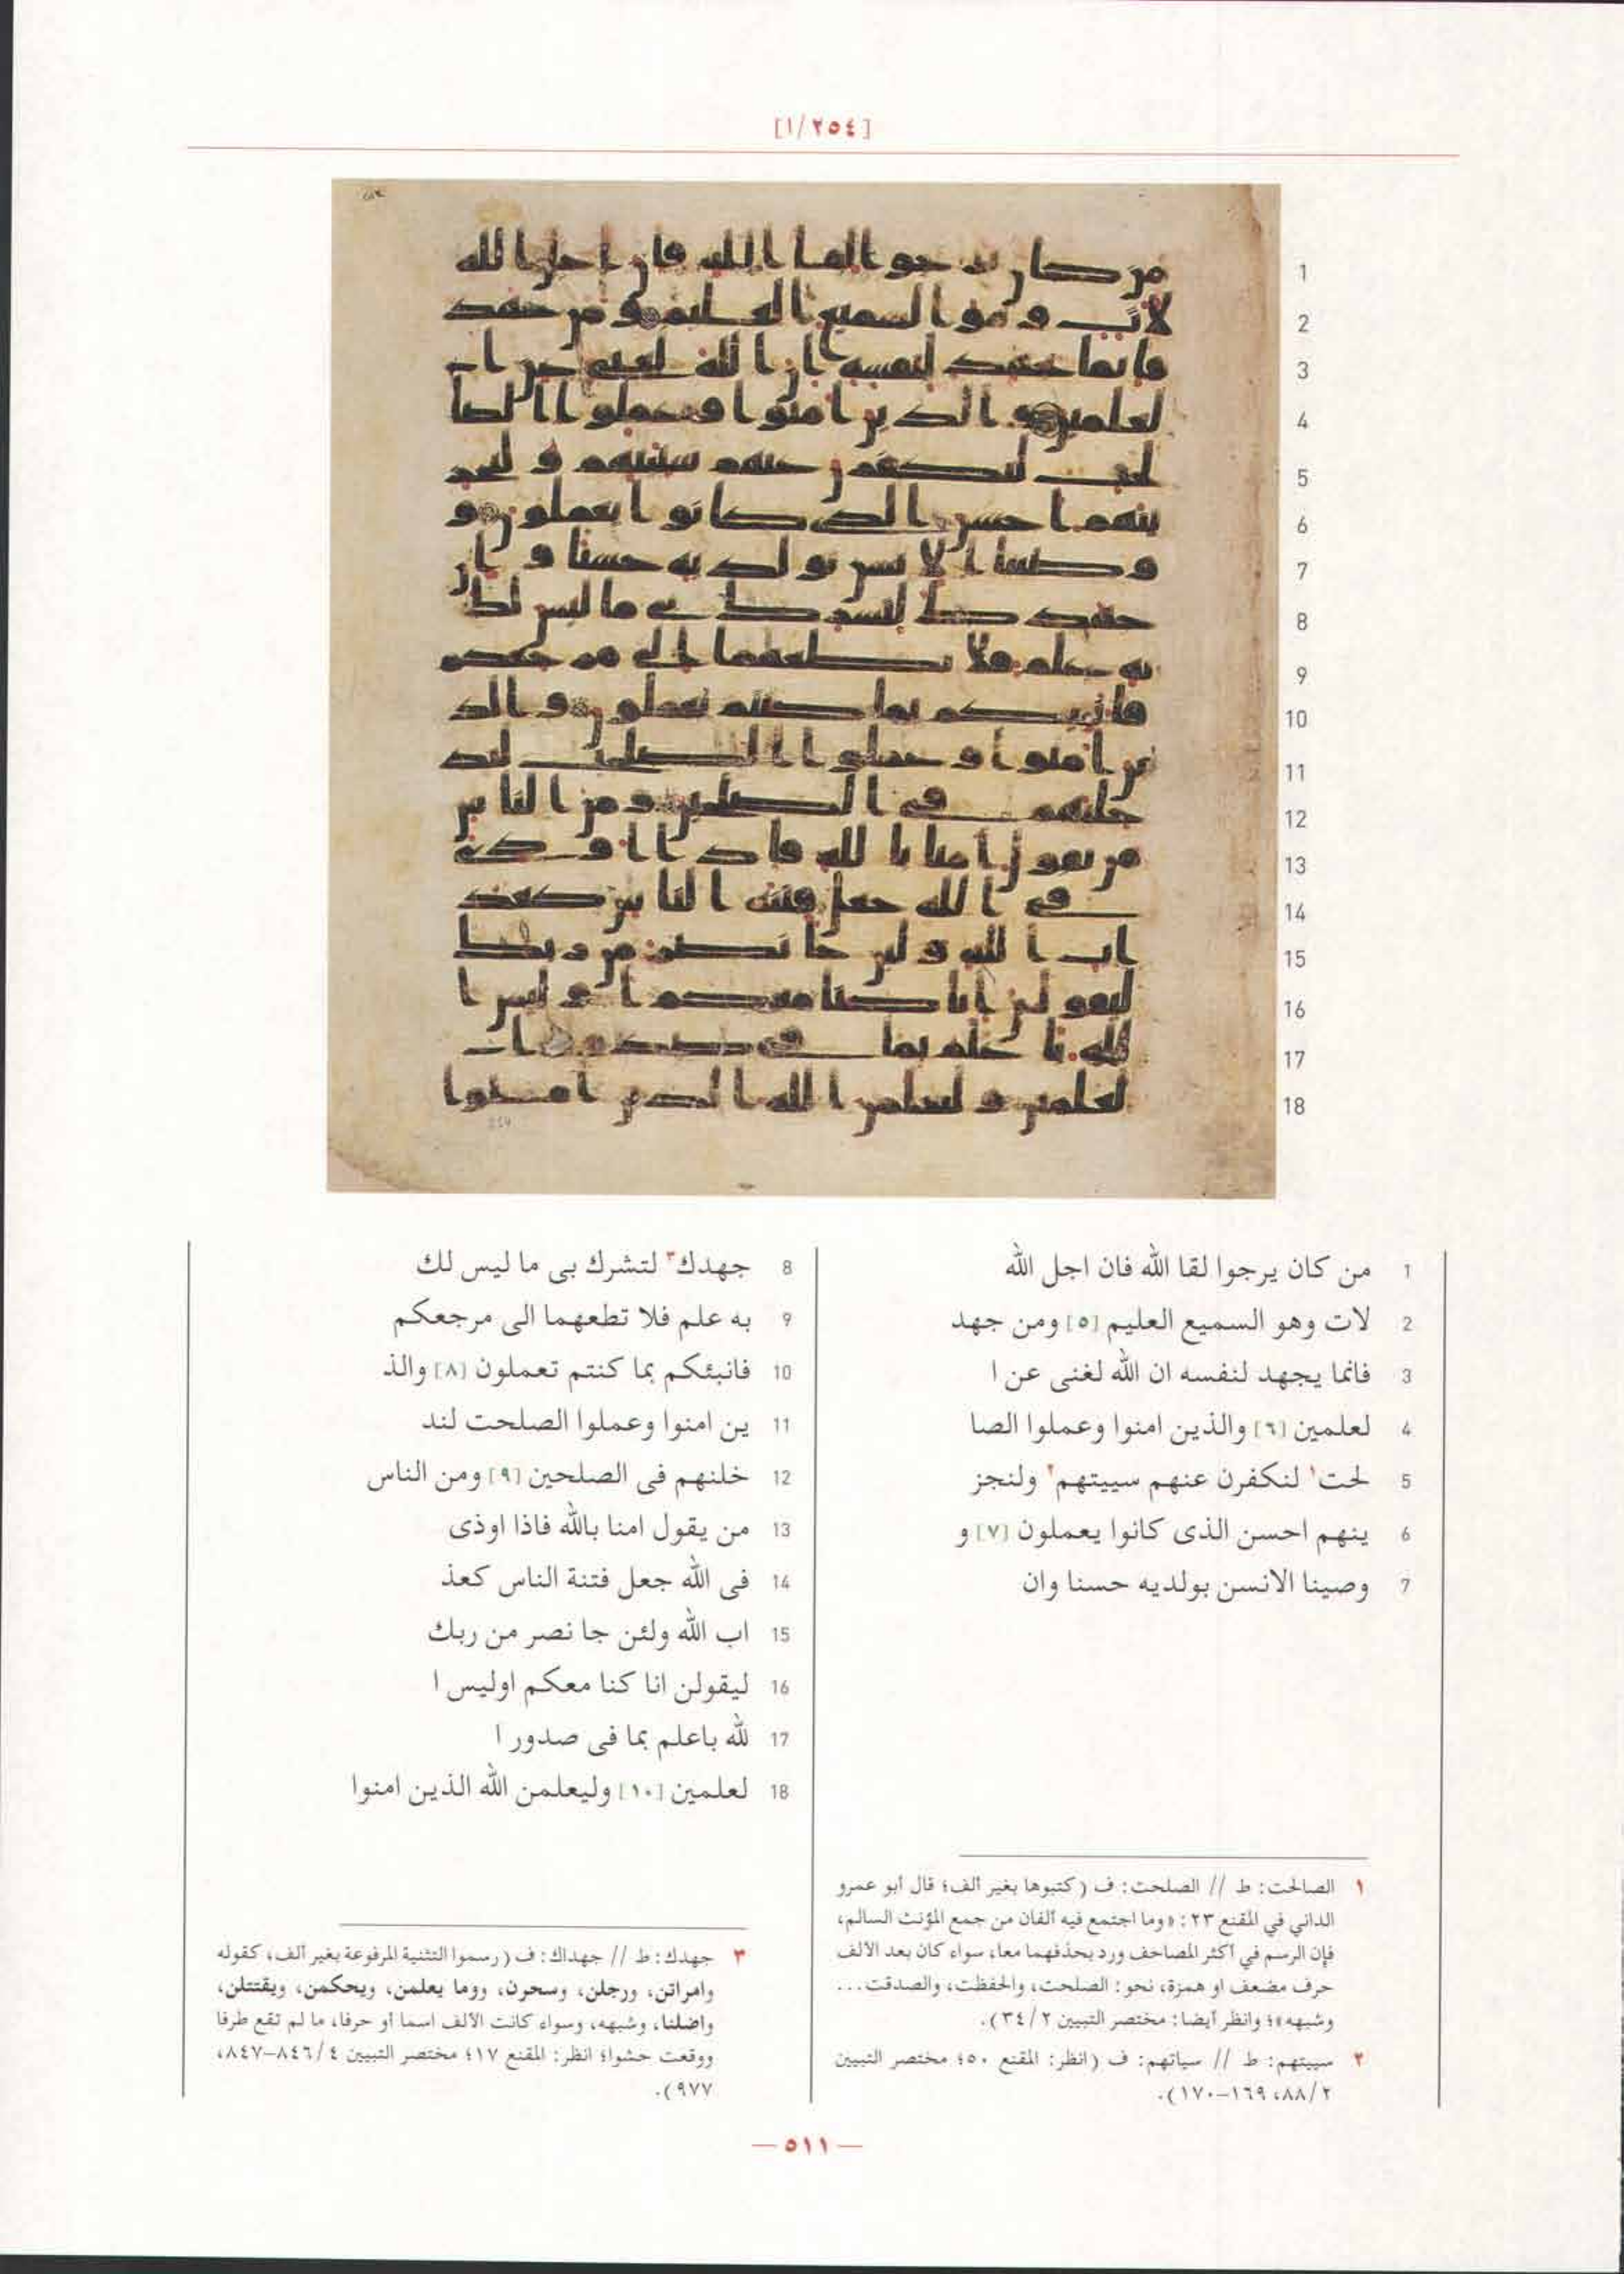 [٢٥٤/١]
1 من كان يرجوا لقا الله فان اجل الله
2 لات وهو السميع العليم [٥] ومن جهد
3 فانما يجهد لنفسه ان الله لغنى عن ا
4 لعلمين [٦] والذين امنوا وعملوا الصا
5 لحت١ لنكفرن عنهم سييتهم٢ ولنجز
6 ينهم احسن الذى كانوا يعملون [٧] و
7 وصينا الانسن بولديه حسنا وان
8 جهدك٣ لتشرك بى ما ليس لك
9 به علم فلا تطعهما الى مرجعكم
10 فانبئكم بما كنتم تعملون [٨] والذ
11 ين امنوا وعملوا الصلحت لند
12 خلنهم فى الصلحين [٩] ومن الناس
13 من يقول امنا بالله فاذا اوذى
14 فى الله جعل فتنة الناس كعذ
15 اب الله ولئن جا نصر من ربك
16 ليقولن انا كنا معكم اوليس ا
17 لله باعلم بما فى صدور ا
18 لعلمين [١٠] وليعلمن الله الذين امنوا
١ الصالحت: ط // الصلحت: ف (كتبوها بغير ألف؛ قال أبو عمرو
الداني في المقنع ٢٣: «وما اجتمع فيه ألفان من جمع المؤنث السالم،
فإن الرسم في أكثر المصاحف ورد بحذفهما معا، سواء كان بعد الألف
حرف مضعف او همزة، نحو: الصلحت، والحفظت، والصدقت...
وشبهه»؛ وانظر أيضا: مختصر التبيين ٣٤/٢).
٢ سييتهم: ط // سياتهم: ف (انظر: المقنع ٥٠؛ مختصر التبيين
٨٨/٢، ١٦٩-١٧٠).
٣ جهدك: ط // جهداك: ف (رسموا التثنية المرفوعة بغير ألف، كقوله
وامراتن، ورجلن، وسحرن، ووما يعلمن، ويحكمن، ويقتتلن،
واضلنا، وشبهه، وسواء كانت الألف اسما أو حرفا، ما لم تقع طرفا
ووقعت حشوا؛ انظر: المقنع ١٧؛ مختصر التبيين ٨٤٦/٤-٨٤٧،
٩٧٧).
— ٥١١ —